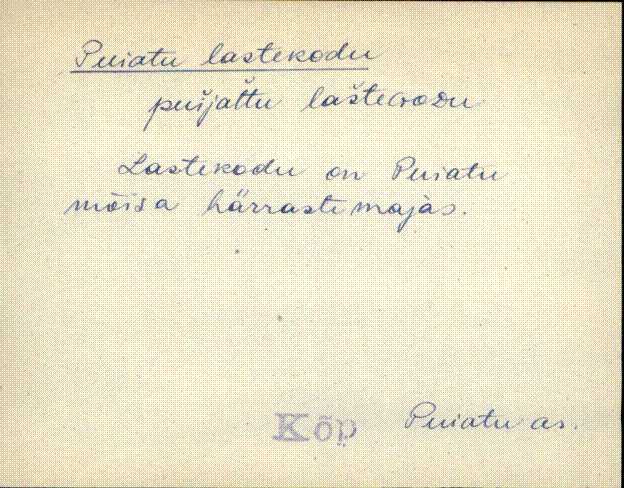 Puiatu lastekodu
puijattu lašteɢᴏᴅu
Lastekodu on Puiatu
mõisa härrastemajas.
Kõp Puiatu as.